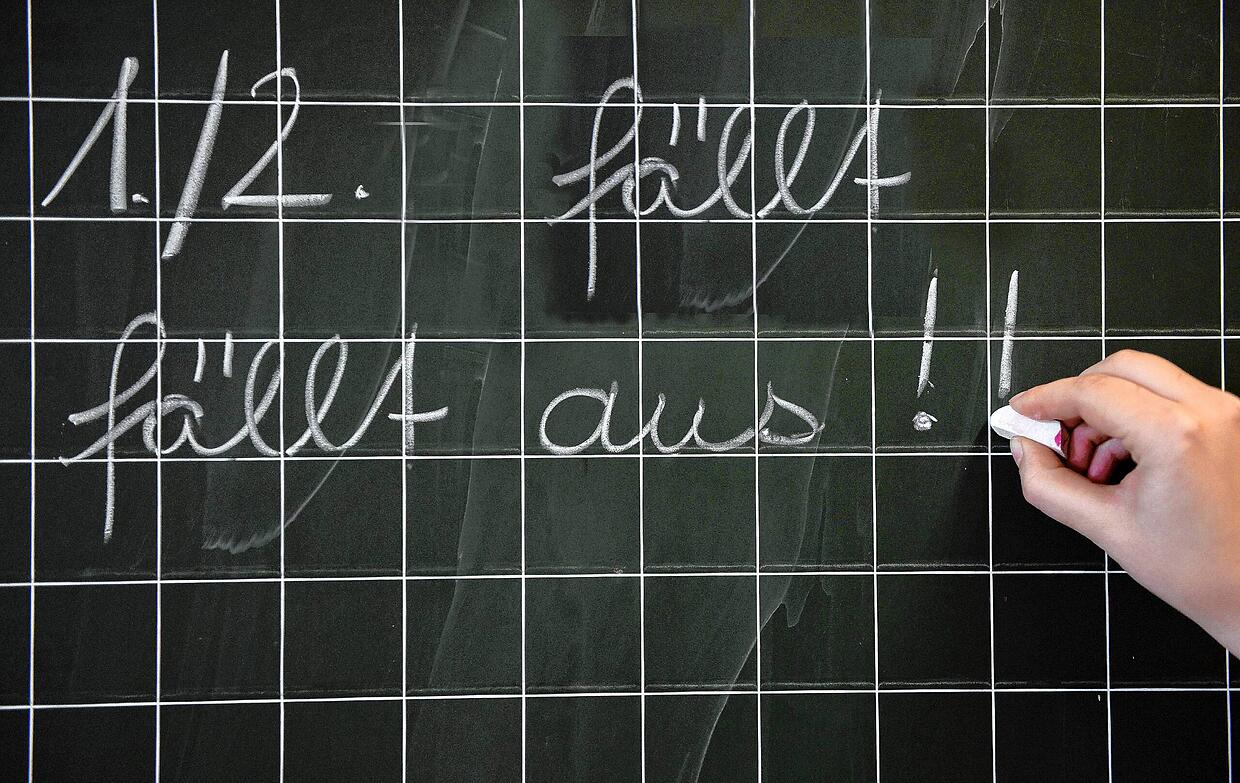 1./2. fällt
fällt aus !!